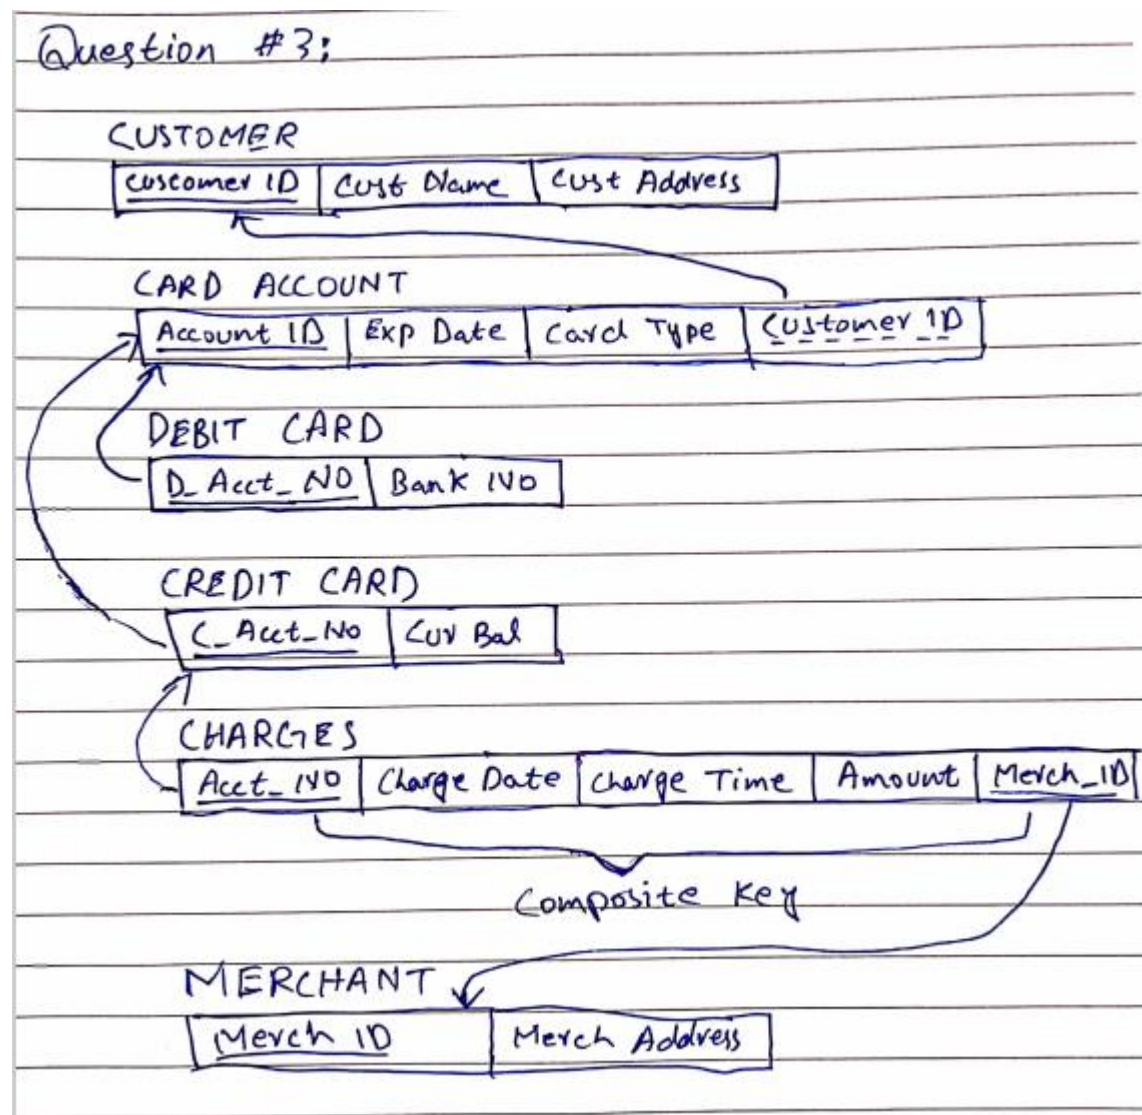 Question #3:
CUSTOMER
Customer ID Cust Name Cust Address
CARD ACCOUNT
Account ID Exp Date Card Type Customer ID
DEBIT CARD
D_Acct_NO Bank NO
CREDIT CARD
C_Acct_No Cur Bal
CHARGES
Acct_NO Charge Date Charge Time Amount Merch_ID
Composite Key
MERCHANT
Merch ID Merch Address